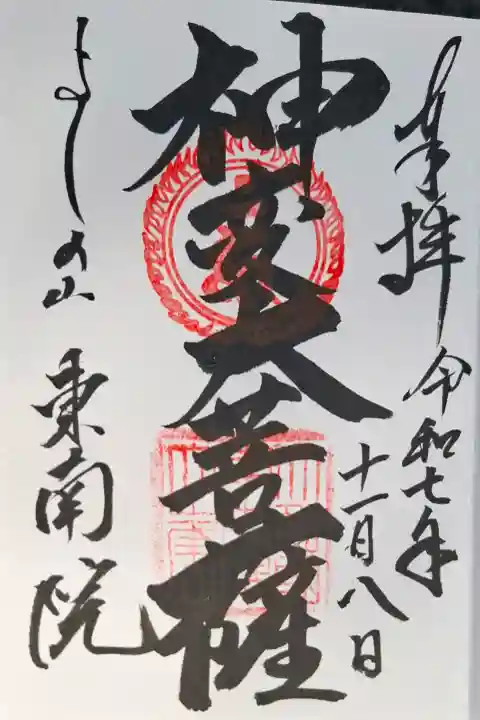 奉拝 令和七年
十一月八日
神変大菩薩
よしの山 東南院